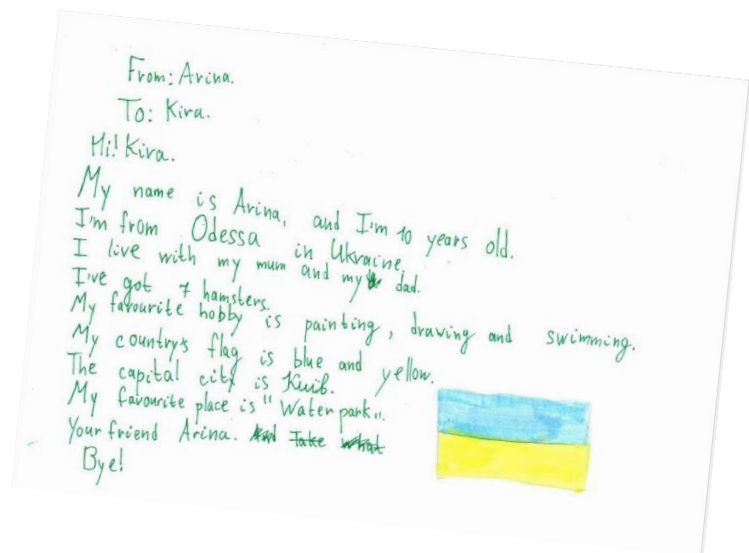 From: Arina.
To: Kira.
Hi! Kira.
My name is Arina, and I'm 10 years old.
I'm from Odessa in Ukraine.
I live with my mum and my dad.
I've got 7 hamsters.
My favourite hobby is painting, drawing and swimming.
My country's flag is blue and yellow.
The capital city is Kuib.
My favourite place is "Water park".
Your friend Arina. And Take what
Bye!